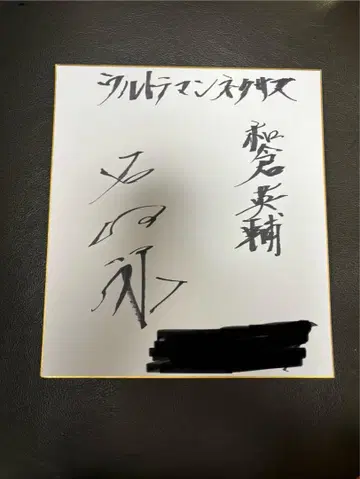 ウルトラマンネクサス
和倉英輔
石橋